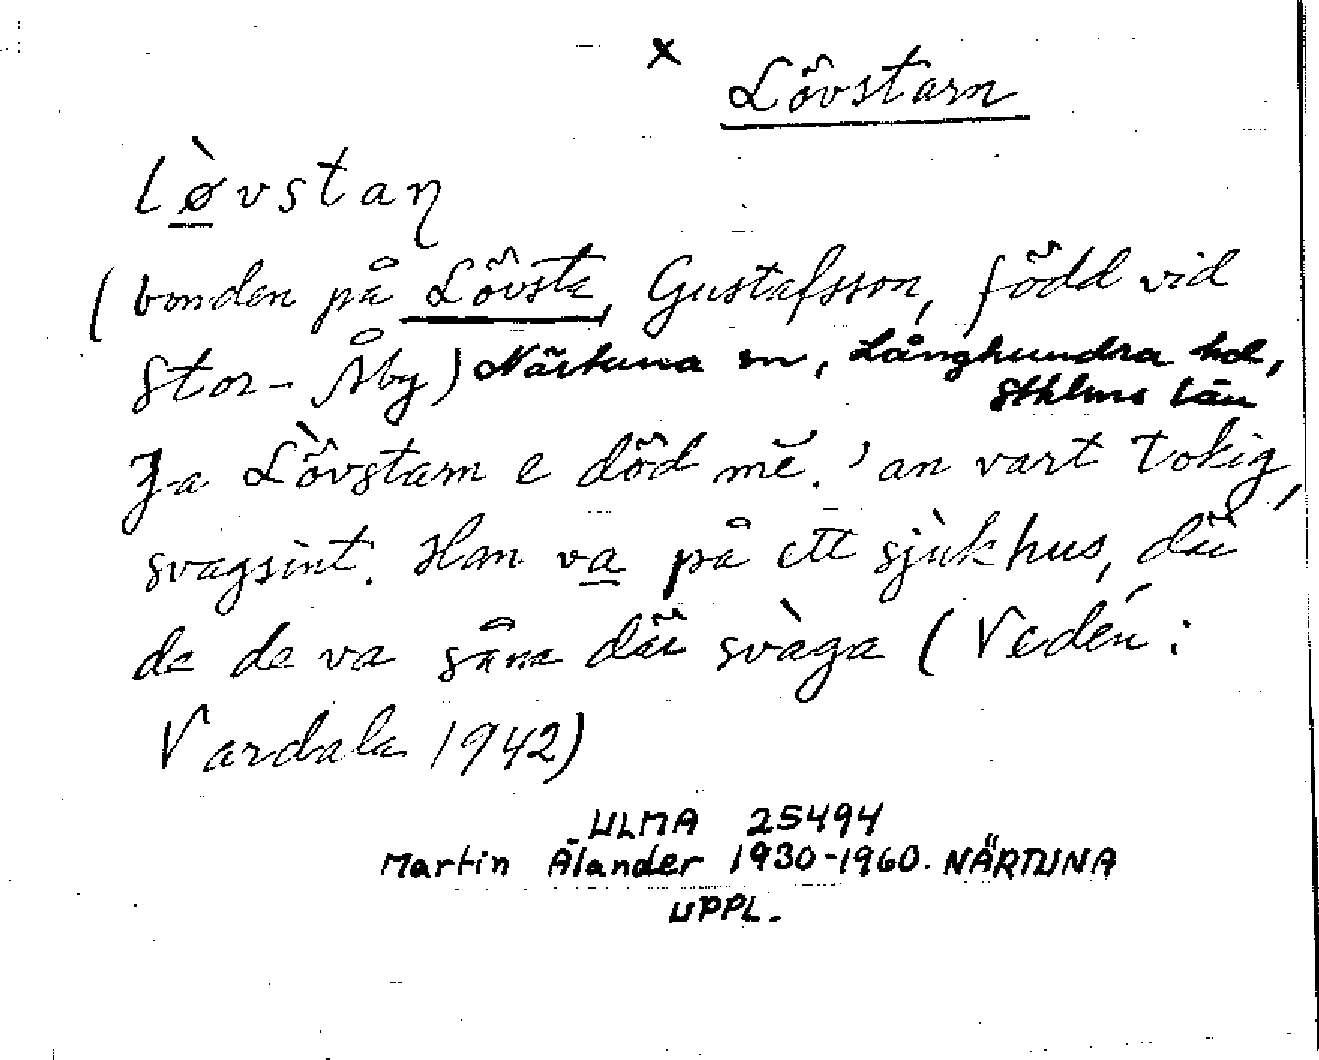 x Lövstarn
lø̀vstaɳ
(bonden på Lövsta, Gustafsson, född vid
Stor-Åby) Närtuna sn, Långhundra hd,
Sthlms län
Ja Lö̀vstarn e död mĕ. 'an vart tokig,
svagsìnt. Han va på ett sjùkhus, där
de de va såna där svàga (Vedén:
Vardala 1942)
ULMA 25494
Martin Ålander 1930-1960. NÄRTUNA
UPPL.